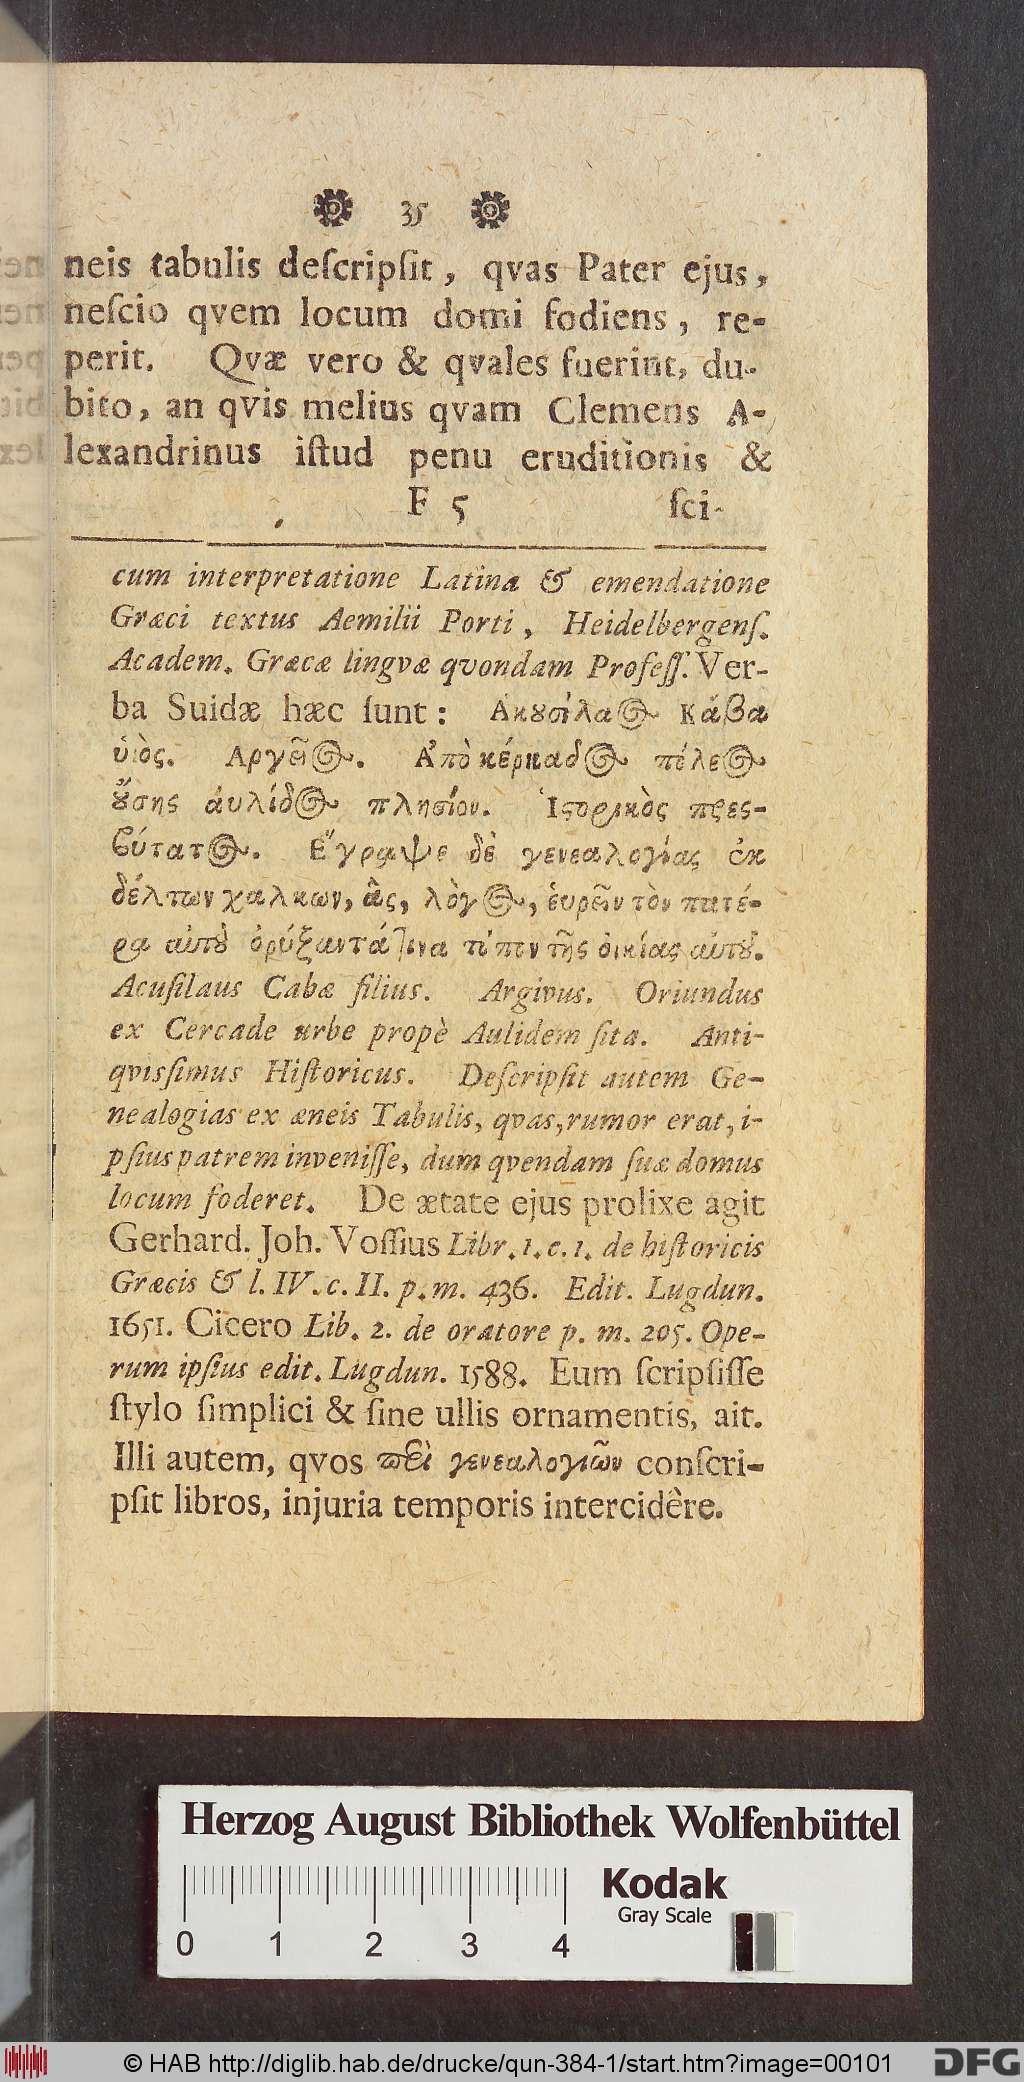 35
neis tabulis deſcripſit, qvas Pater ejus,
neſcio qvem locum domi fodiens, re-
perit. Qvæ vero & qvales fuerint, du-
bito, an qvis melius qvam Clemens A-
lexandrinus iſtud penu eruditionis &
F 5 ſci-
cum interpretatione Latina & emendatione
Græci textus Aemilii Porti, Heidelbergenſ.
Academ. Græcæ lingvæ qvondam Profeſſ. Ver-
ba Suidæ hæc ſunt: Ακȣσίλαος Κάβα
ὑιὸς. Αργεῖος. Ἀπὸ κέρκαδος πόλεος
ȣ̓́σης ἀυλίδος πλησίον. Ἱςορικὸς πρες-
βύτατος. Ἔγραψε δὲ γενεαλογίας ἐκ
δέλτων χαλκων, ἃς, λὸγος, ἑυρεῖν τὸν πατέ-
ρα αὐτȣ͂ ὀρύξαντά τινα τόπον τῆς ὀικίας αὐτȣ͂.
Acuſilaus Cabæ filius. Argivus. Oriundus
ex Cercade urbe propè Aulidem ſita. Anti-
qviſſimus Hiſtoricus. Deſcripſit autem Ge-
nealogias ex æneis Tabulis, qvas, rumor erat, i-
pſius patrem inveniſſe, dum qvendam ſuæ domus
locum foderet. De ætate ejus prolixe agit
Gerhard. Joh. Voſſius Libr. 1. c. 1. de hiſtoricis
Græcis & l. IV. c. II. p. m. 436. Edit. Lugdun.
1651. Cicero Lib. 2. de oratore p. m. 205. Ope-
rum ipſius edit. Lugdun. 1588. Eum ſcripſiſſe
ſtylo ſimplici & ſine ullis ornamentis, ait.
Illi autem, qvos περὶ γενεαλογιῶν conſcri-
pſit libros, injuria temporis intercidêre.
Herzog August Bibliothek Wolfenbüttel
Kodak
Gray Scale
0 1 2 3 4
© HAB http://diglib.hab.de/drucke/qun-384-1/start.htm?image=00101
DFG